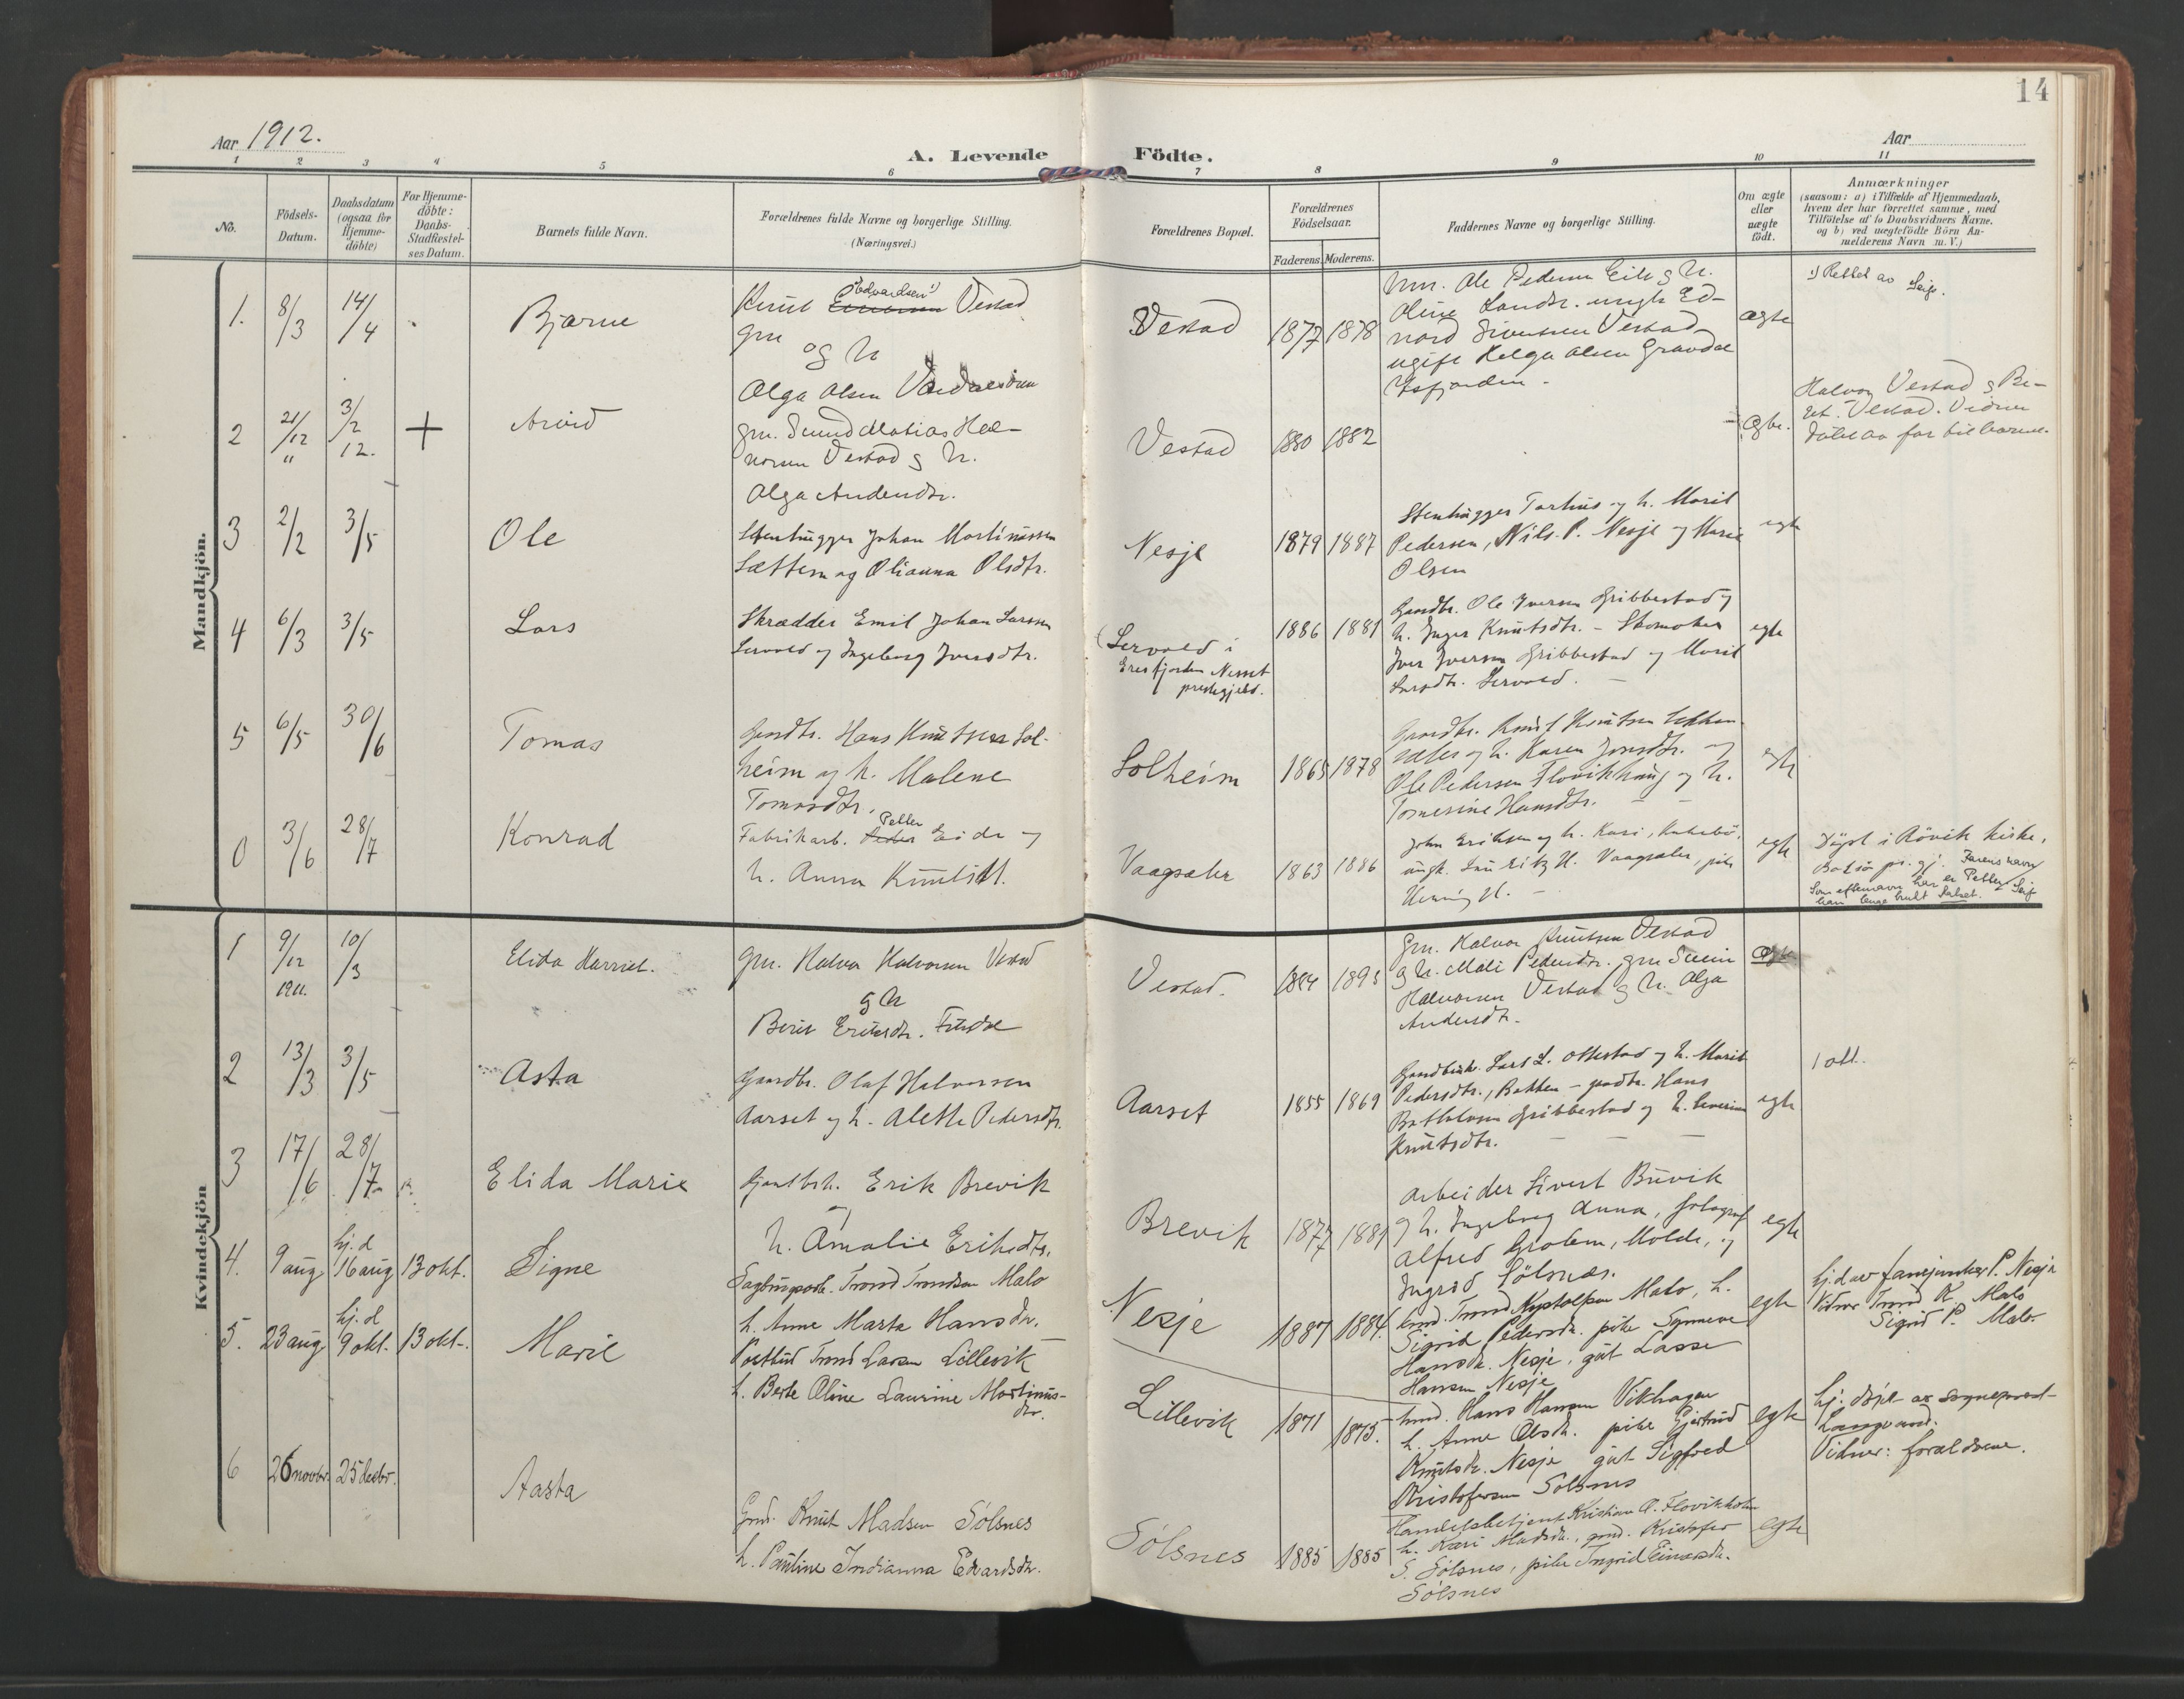 14
Aar 1912.
A. Levende Födte.
Aar
1 2 3 4 5 6 7 8 9 10 11
No.
Födsels-Datum.
Daabsdatum (ogsaa for Hjemme-döbte)
For Hjemme-döbte: Daabs-Stadfæstel-ses Datum.
Barnets fulde Navn.
Forældrenes fulde Navne og borgerlige Stilling.
(Næringsvei.)
Forældrenes Bopæl.
Forældrenes Födselsaar.
Faderens. Moderens.
Faddernes Navne og borgerlige Stilling.
Om ægte eller uægte födt.
Anmærkninger
(saasom: a) i Tilfælde af Hjemmedaab,
hvem der har forrettet samme, med
Tilföielse af to Daabsvidners Navne.
og b) ved uægtefödte Börn An-
melderens Navn m. V.)
Mandkjön.
1. 8/3 14/4 Bjarne
Knut Edvardsen Vestad
gm
og h
Olga Olsen
Vestad 1877 1878
Ole Pedersen Eik g h.
Oline
ugift Helga Olsen
ægte
1) Rettet av
2 21/12 " 3/2 12. + Arvid
gm. Svend Matias Hal-
vorsen Vestad g h.
Olga Andersdtr.
Vestad 1880 1882
ægte.
Halvor Vestad g Be-
Vestad. Vidner
3 2/2 3/5 Ole
Stenhugger Johan Martinussen
Sættem og Olianna Olsdtr.
Nesje 1879 1887
Stenhugger Torhus og h. Marit
Pedersen, Nils. P. Nesje og Marie
Olsen
egte
4 6/3 3/5 Lars
Skrædder Emil Johan Larssen
Lervold og Ingeborg Iversdtr.
Lervold i
Eresfjorden Nesset
prestegjeld.
1886 1881
Gardbr. Ole Iversen Gribbestad og
h. Inger Knutsdtr. - Skomaker
Iver Iversen Gribbestad og Marit
Larsdtr. Lervold.
egte
5 6/5 30/6 Tomas
Gardbr. Hans Knutsen Sol-
heim og h. Malene
Tomasdtr.
Solheim 1865 1878
Gardbr. Knut Knutsen
og h. Karen Jonsdtr. og
Ole Pedersen Flovikhaug og h.
Tomesine Hansdtr.
egte
6 3/6 28/7 Konrad
Fabrikarb. Petter Eide og
h. Anna Knutsdt.
Vaagsæter 1863 1886
John Eriksen og h. Kari,
ungk. Vaagsæter, pike
egte
Döpt i Rövik kirke,
Bolsö pr.gj. Farens navn
er Petter.
Som efternavn har
han længe brukt
Kvindekjön
1 9/12 1911. 10/3 Elida Harriet.
gm. Halvor Halvorsen Vestad
g h
Berit Eriksdtr.
Vestad. 1884 1895
Gm. Halvor Knutsen Vestad
g h. Mali Pedersdtr. gm Svein
Halvorsen Vestad g h. Olga
Andersdtr.
ægte
2 13/3 3/5 Asta
Gaardbr. Olaf Halvorsen
Aarset og h. Alette Pedersdtr.
Aarset 1855 1869
Gardbruk. Lars L. Ottestad og h. Marit
Pedersdtr., Bakken - gardbr. Hans
Gribbestad og h. Severine
Knutsdtr.
egte
1 ott.
3 17/6 28/7 Elida Marie
Gardbr. Erik Brevik
og
h. Amalie Eriksdtr.
Brevik 1877 1881
Arbeider Sivert Brevik
og h. Ingeborg Anna, fotograf
Alfred Grolem, Molde, og
Ingrid Sölsnæs.
egte
4. 9 aug hj. d 16 aug 13 okt. Signe
Sagbrugsarb. Trond Trondsen Malo
h. Anne Marta Hansdr.
Nesje 1887 1884.
Gmd. Trond Malo, h.
Sigrid Pedersdr. pike Synneve
Hansdr. Nesje, gut Lasse
Hansen Nesje
egte
hj.d av fanejunker P. Nesje
Vidner Trond K. Malo
Sigrid P. Malo.
5. 23 aug hj. d 9 okt. 13 okt. Marie
Postbud Trond Larsen Lillevik
h. Berte Oline Laurine Martinus-
dtr.
Lillevik 1871 1875.
Gmd. Hans Hansen Vikhagen
h. Anne Olsdr. pike Gjertrud
Knutsdr. Nesje gut Sigfred
Kristofersen Solsnes
egte
hj. döpt av sogneprest
Langvand.
Vidner: forældrene.
6 26 novbr. 25 decbr. Aasta
Gmd. Knut Madsen Sölsnes
h. Pauline Indianna Edvardsdr.
Sölsnes 1885 1885
Handelsbetjent Kristian O. Flovikholm
h. Kari Madsdr., gmd. Kristofer
S. Sölsnes, pike Ingrid Einarsdr.
Sölsnes
egte